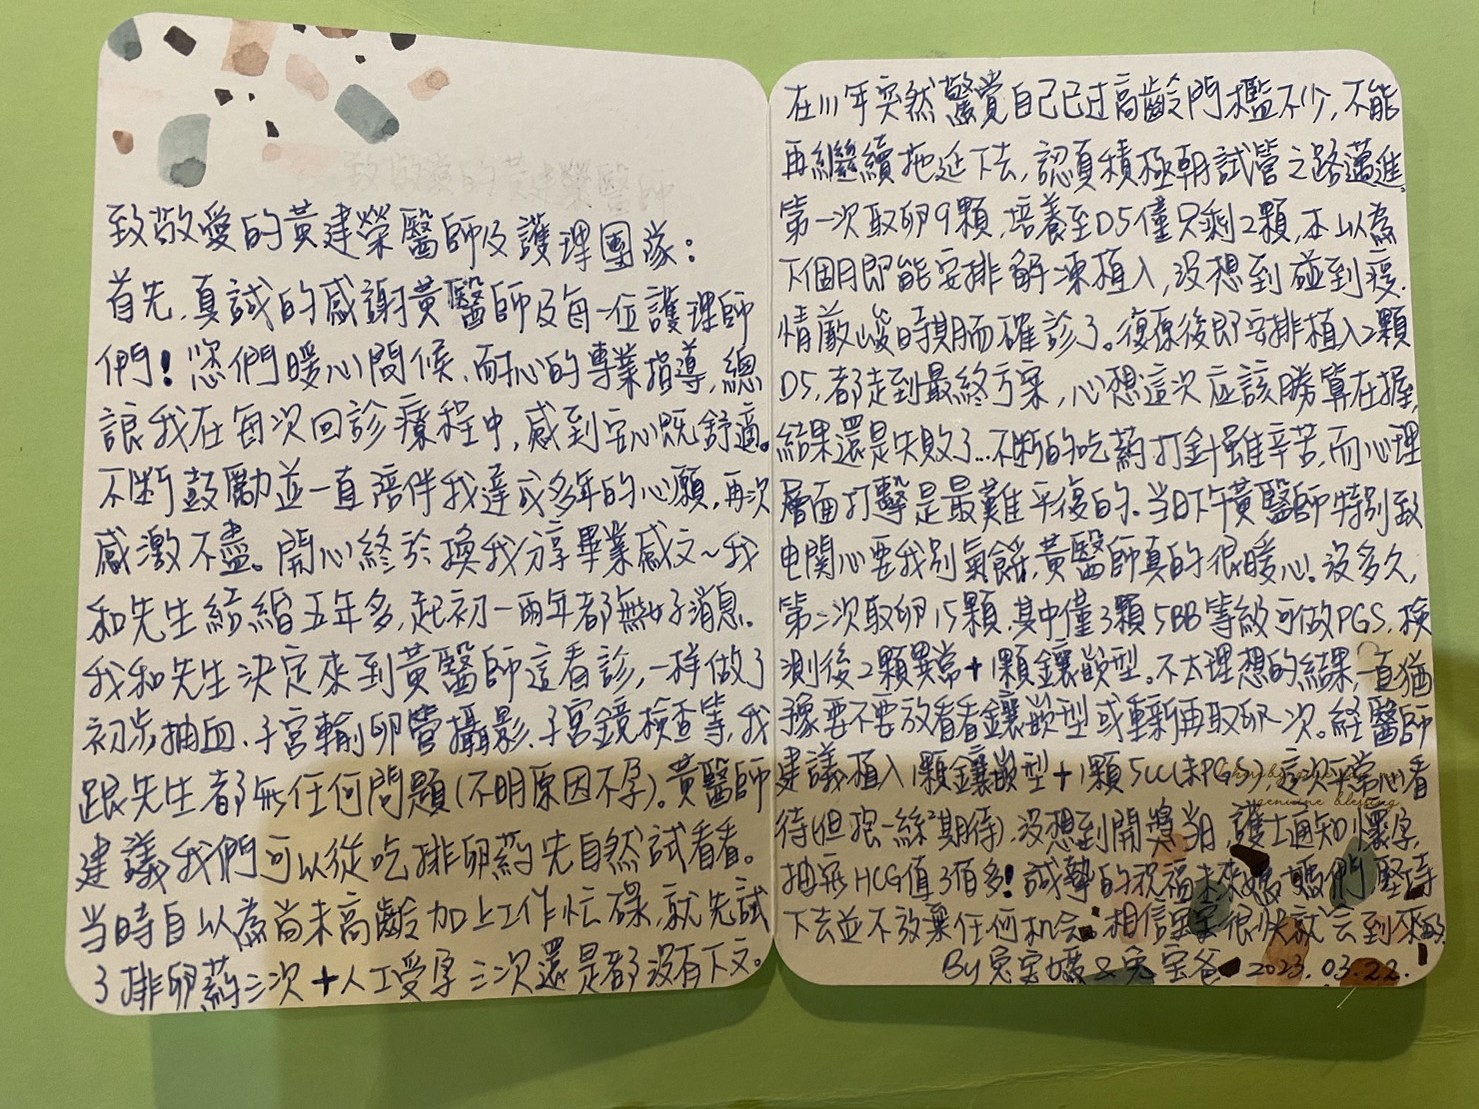 致敬愛的黃建榮醫師及護理團隊：
首先，真誠的感謝黃醫師及每一位護理師
們！您們暖心問候、耐心的專業指導，總
讓我在每次回診療程中，感到安心既舒適。
不斷鼓勵並一直陪伴我達成多年的心願，再次
感激不盡。開心終於換我分享畢業感文~我
和先生結婚五年多，起初一兩年都無好消息。
我和先生決定來到黃醫師這看診，一样做了
初步抽血、子宮輸卵管攝影、子宮鏡檢查等，我
跟先生都無任何問題(不明原因不孕)。黃醫師
建議我們可以從吃排卵葯先自然試看看。
当時自以為尚未高齡加上工作忙碌，就先試
了排卵葯三次+人工受孕三次還是都沒有下文。
在111年突然驚覺自己已过高齡門檻不少，不能
再繼續拖延下去，認真積極朝試管之路邁進。
第一次取卵9顆，培養至D5僅只剩2顆，本以為
下個月即能安排解凍植入，沒想到碰到疫
情嚴峻時期而確診了。復原後即安排植入2顆
D5，都走到最終方案，心想這次应該勝算在握，
結果還是失敗了...不斷的吃葯打針雖辛苦，而心理
層面打擊是最難平復的。当日下午黃醫師特別致
电関心要我別氣餒，黃醫師真的很暖心！沒多久，
第二次取卵15顆，其中僅3顆5BB等級可做PGS，檢
測後2顆異常+1顆鑲嵌型。不太理想的結果，一直猶
豫要不要放看看鑲嵌型或重新再取卵一次。経醫師
建議植入1顆鑲嵌型+1顆5CC(未PGS)，這次平常心看
待(但抱一絲²期待)，沒想到開獎当日，護士通知懷孕，
抽血HCG值3佰多！誠摯的祝福未來媽媽們堅持
下去並不放棄任何机会。相信寶寶很快就会到來的
By 兔宝媽&兔宝爸 2023.03.22.
genuine blessing